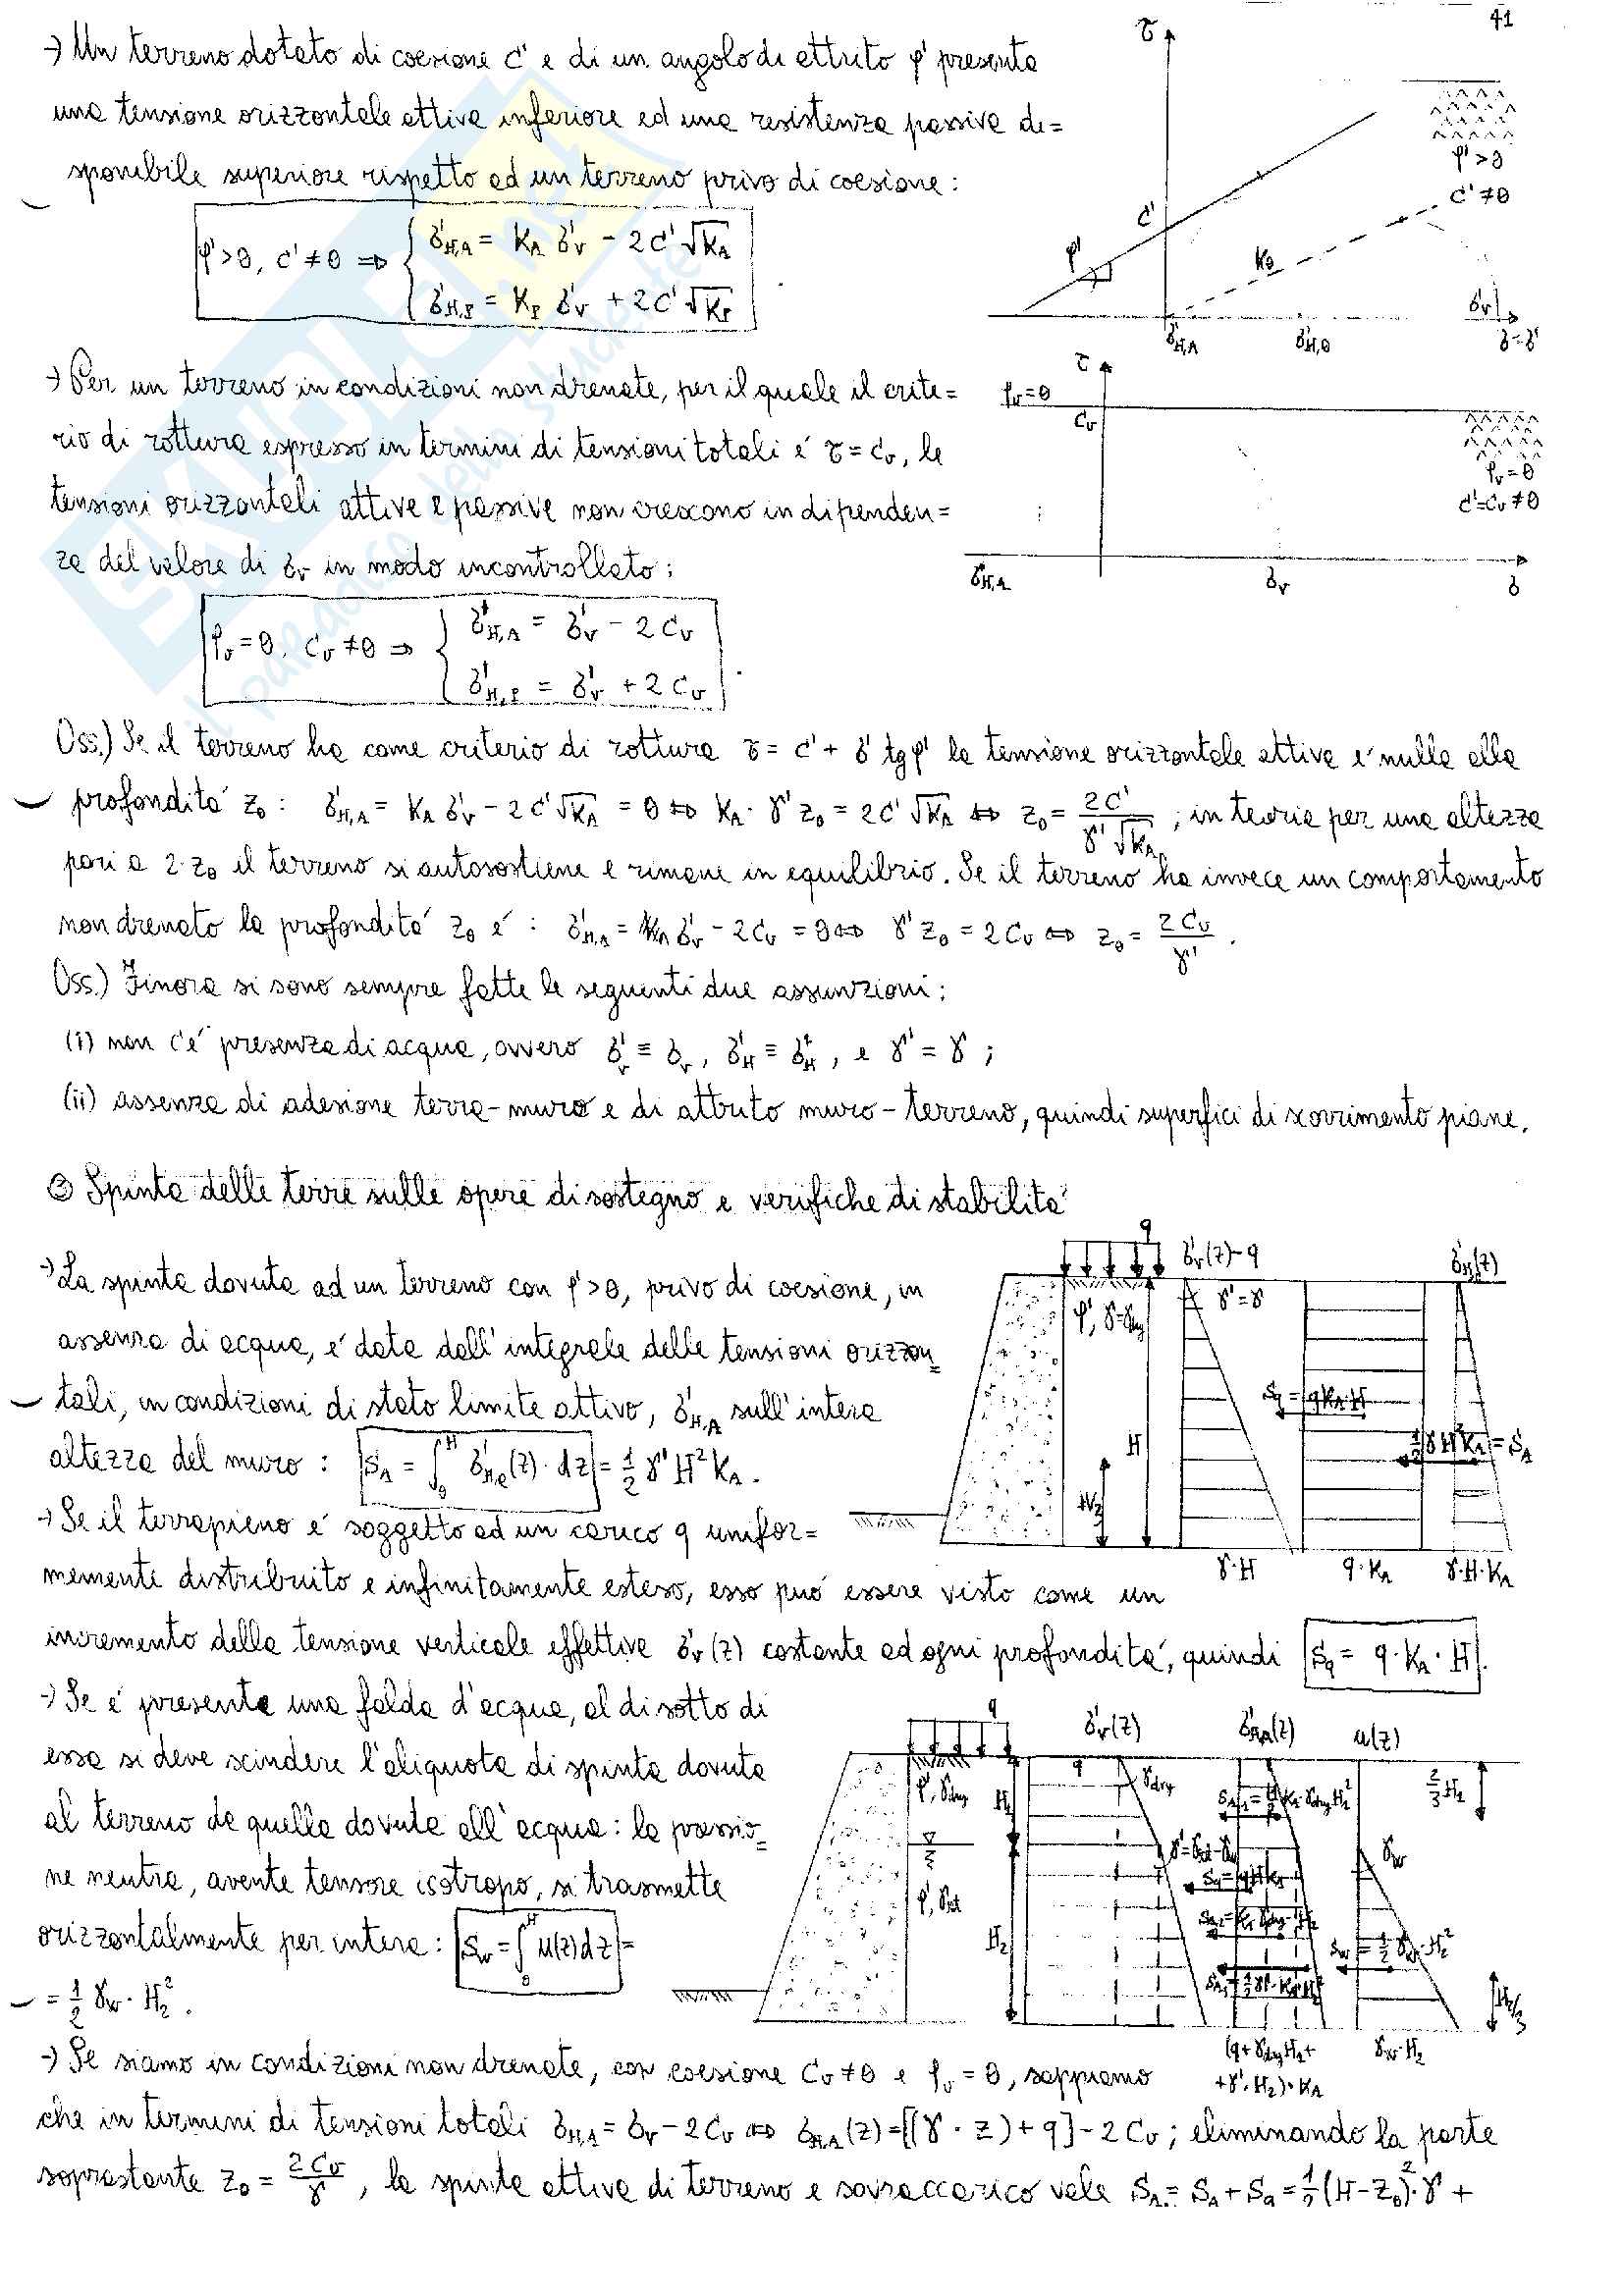 41
→ Un terreno dotato di coesione c' e di un angolo di attrito φ' presenta
una tensione orizzontale attiva inferiore ed una resistenza passiva di=
sponibile superiore rispetto ad un terreno privo di coesione:
φ'>0, c'≠0 ⇒ { σ'H,A = KA σ'v - 2c'√KA
σ'H,P = KP σ'v + 2c'√KP
τ
c'
φ'
K0
φ'>0
c'≠0
σ'H,A
σ'H,0
σ'v
σ=σ'
→ Per un terreno in condizioni non drenate, per il quale il crite=
rio di rottura espresso in termini di tensioni totali é τ=cu, le
tensioni orizzontali attive e passive non crescono in dipenden=
za del valore di σv in modo incontrollato:
φu=0, cu≠0 ⇒ { σ'H,A = σ'v - 2cu
σ'H,P = σ'v + 2cu
τ
φu=0
cu
φu=0
c'=cu≠0
σH,A
σv
σ
Oss.) Se il terreno ha come criterio di rottura τ = c' + σ' tgφ' la tensione orizzontale attiva é nulla alla
profonditá z0: σ'H,A = KA σ'v - 2c'√KA = 0 ⇔ KA·γ'z0 = 2c'√KA ⇔ z0 = 2c'/γ'√KA; in teoria per una altezza
pari a 2·z0 il terreno si autosostiene e rimane in equilibrio. Se il terreno ha invece un comportamento
non drenato la profonditá z0 é: σ'H,A = σ'v - 2cu = 0 ⇔ γ'z0 = 2cu ⇔ z0 = 2cu/γ'.
Oss.) Finora si sono sempre fatte le seguenti due assunzioni:
(i) non c'é presenza di acqua, ovvero σ'v ≡ σv, σ'H ≡ σH, e γ' = γ;
(ii) assenza di adesione terra-muro e di attrito muro-terreno, quindi superfici di scorrimento piane.
③ Spinta delle terre sulle opere di sostegno e verifiche di stabilitá
→ La spinta dovuta ad un terreno con φ'>0, privo di coesione, in
assenza di acqua, é data dall'integrale delle tensioni orizzon=
tali, in condizioni di stato limite attivo, σ'H,A sull'intera
altezza del muro: SA = ∫0^H σ'H,a(z)·dz = 1/2 γ'H²KA.
q
σ'v(z)-q
σ'H(z)
φ', γ=γdry
γ'=γ
Sq=qKA·H
1/2γH²KA=SA
H
H/3
γ·H
q·KA
γ·H·KA
→ Se il terrapieno é soggetto ad un carico q unifor=
memente distribuito e infinitamente esteso, esso puó essere visto come un
incremento della tensione verticale effettiva σ'v(z) costante ad ogni profonditá, quindi Sq = q·KA·H.
→ Se é presente una falda d'acqua, al di sotto di
essa si deve scindere l'aliquota di spinta dovuta
al terreno da quella dovuta all'acqua: la pressio=
ne neutra, avente tensore isotropo, si trasmette
orizzontalmente per intera: Sw = ∫0^H u(z)dz =
= 1/2 γw·H2².
q
σ'v(z)
σ'H,A(z)
u(z)
q
γdry
φ', γdry
H1
2/3 H2
γ'=γsat-γw
γw
φ', γsat
H2
Sw=1/2·γw·H2²
H2/3
(q+γdry H1+
+γ'·H2)·KA
γw·H2
→ Se siamo in condizioni non drenate, con coesione cu≠0 e φu=0, sappiamo
che in termini di tensioni totali σH,A = σv - 2cu ⇔ σH,A(z)=[(γ·z)+q]-2cu; eliminando la parte
soprastante z0 = 2cu/γ, la spinta attiva di terreno e sovraccarico vale SA = SA + Sq = 1/2(H-z0)²·γ +